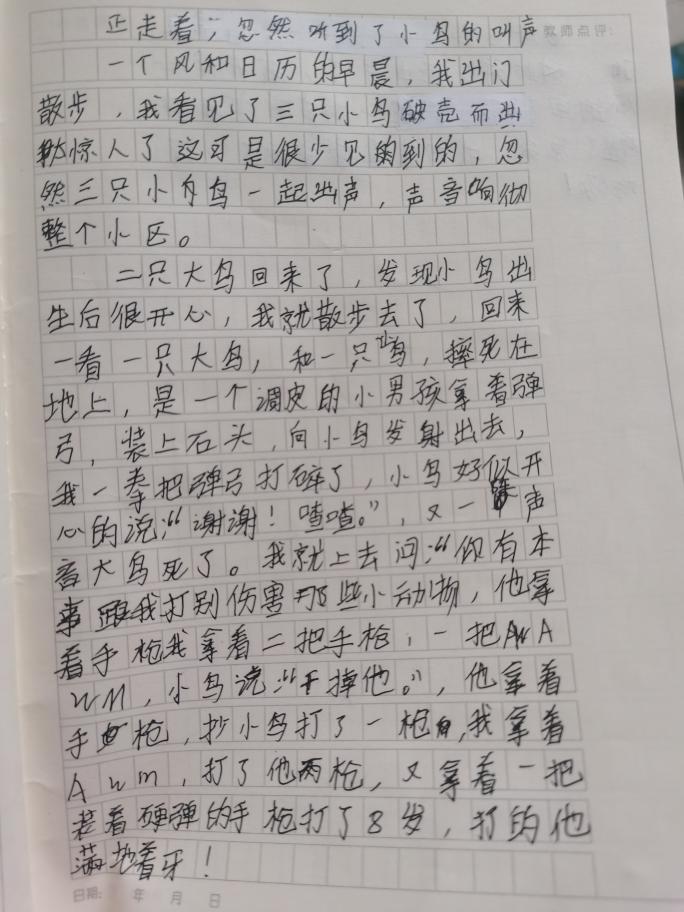 正走着，忽然听到了小鸟的叫声
教师点评：
一个风和日历的早晨，我出门
散步，我看见了三只小鸟破壳而出
惊人了这可是很少见的到的，忽
然三只小鸟一起出声，声音响彻
整个小区。
二只大鸟回来了，发现小鸟出
生后很开心，我就散步去了，回来
一看一只大鸟，和一只小鸟，摔死在
地上，是一个调皮的小男孩拿着弹
弓，装上石头，向小鸟发射出去，
我一拳把弹弓打碎了，小鸟好似开
心的说：“谢谢！喳喳。”，又一声
音大鸟死了。我就上去问：“你有本
事跟我打别伤害那些小动物，他拿
着手枪我拿着二把手枪，一把AWA
WM，小鸟说：“干掉他。”，他拿着
手枪，抄小鸟打了一枪，我拿着
Awm，打了他两枪，又拿着一把
装着硬弹的手枪打了8发，打的他
满地着牙！
日期： 年 月 日